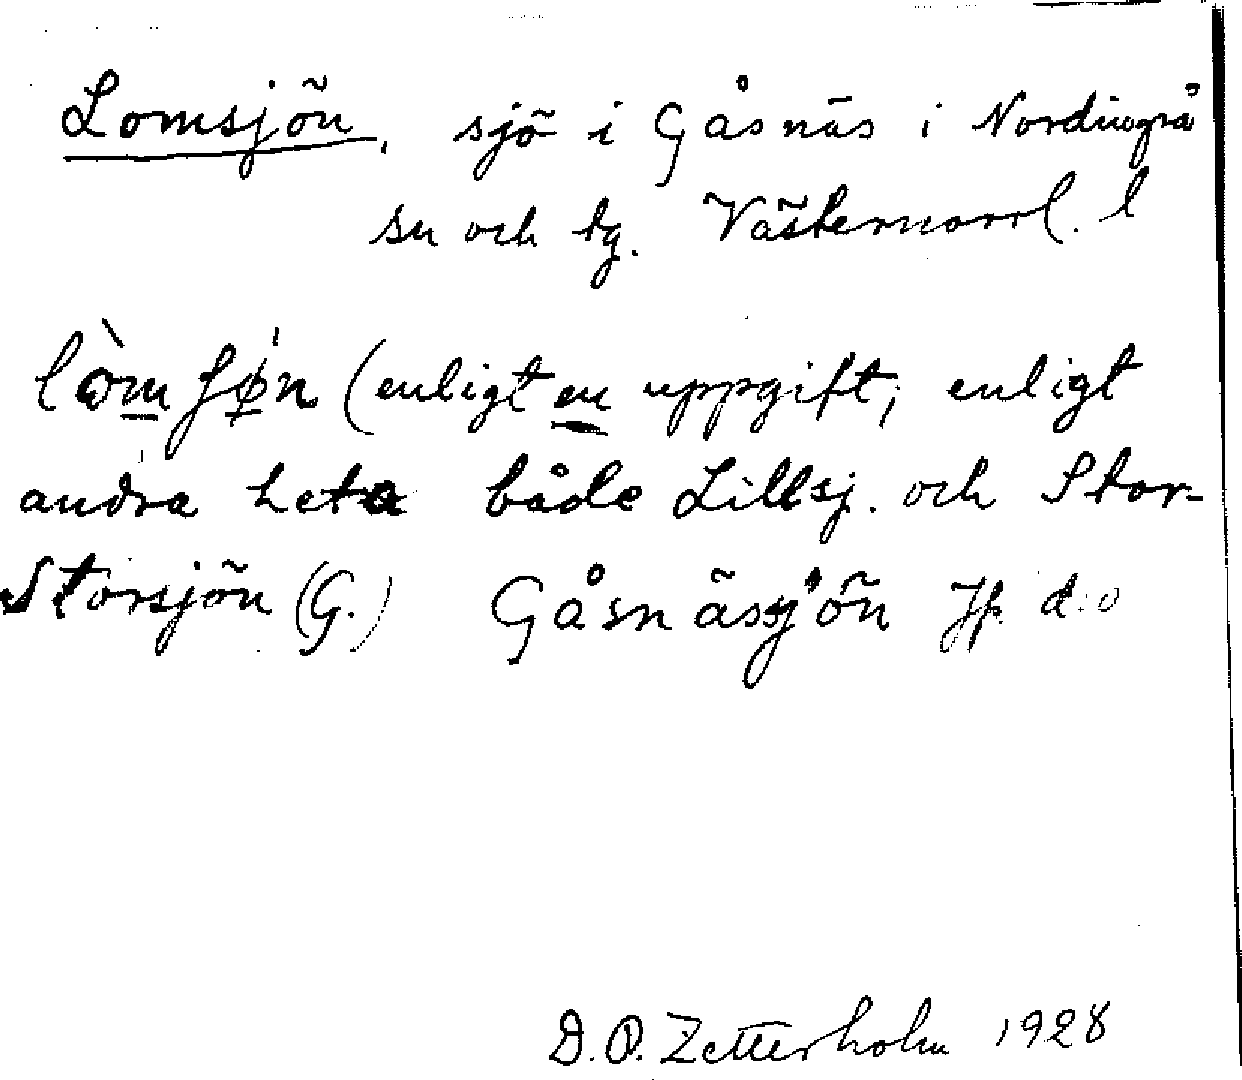 Lomsjön, sjö i Gåsnäs i Nordingrå
sn och tg. Västernorrl. l
lòm ʃø̀n (enligt en uppgift; enligt
andra heta både Lillsj. och Stor-
Storsjön (G.) Gåsnässjön Jfr d:o
D. O. Zetterholm 1928